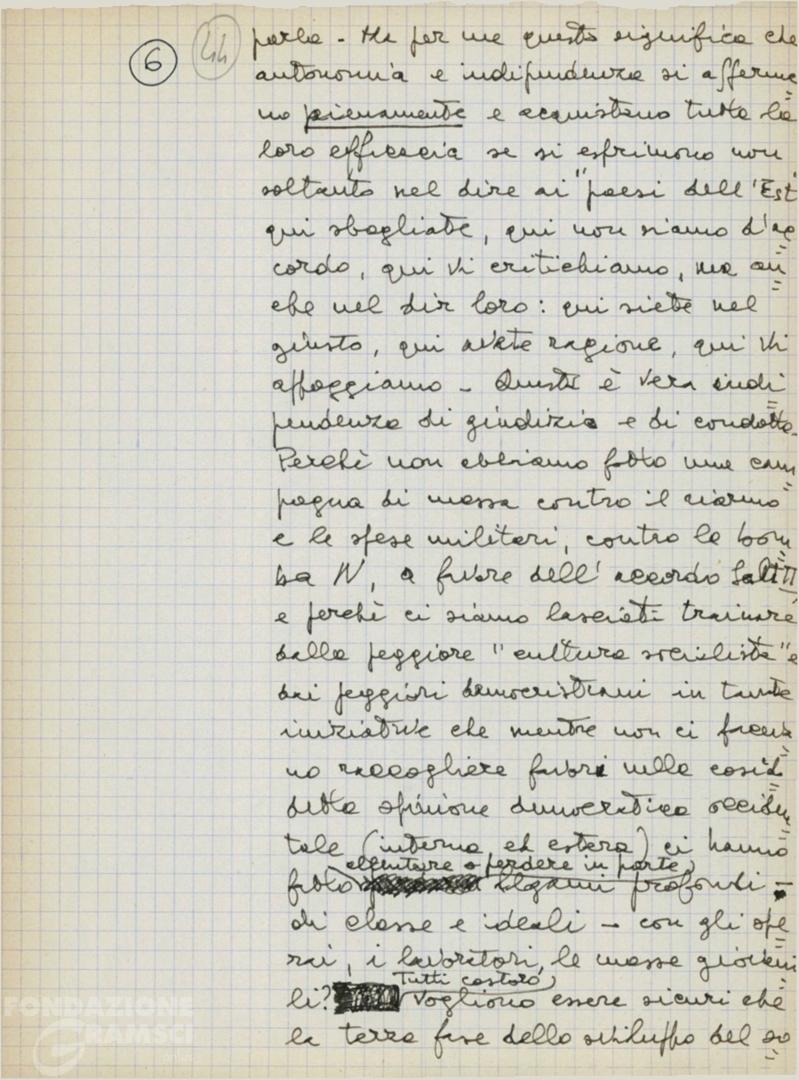 6 44
parla - Ma per me questo significa che
autonomia e indipendenza si afferma=
no pienamente e acquistano tutta la
loro efficacia se si esprimono non
soltanto nel dire ai "paesi dell'Est"
qui sbagliate, qui non siamo d'ac=
cordo, qui vi critichiamo, ma an=
che nel dir loro: qui siete nel
giusto, qui avete ragione, qui vi
appoggiamo - Questa è vera indi=
pendenza di giudizio e di condotta.
Perchè non abbiamo fatto una cam=
pagna di massa contro il riarmo
e le spese militari, contro la bom=
ba N, a favore dell'accordo Salt II,
e perchè ci siamo lasciati trainare
dalla peggiore "cultura socialista" e
dai peggiori democristiani in tante
iniziative che mentre non ci faceva=
no raccogliere favori nella cosid=
detta opinione democratica occiden=
tale (interna ed estera) ci hanno
allentare o perdere in parte
fatto legami profondi -
di classe e ideali - con gli ope=
rai, i lavoratori, le masse giovani=
Tutti costoro
li? vogliono essere sicuri che
la terza fase dello sviluppo del so=
FONDAZIONE
GRAMSCI